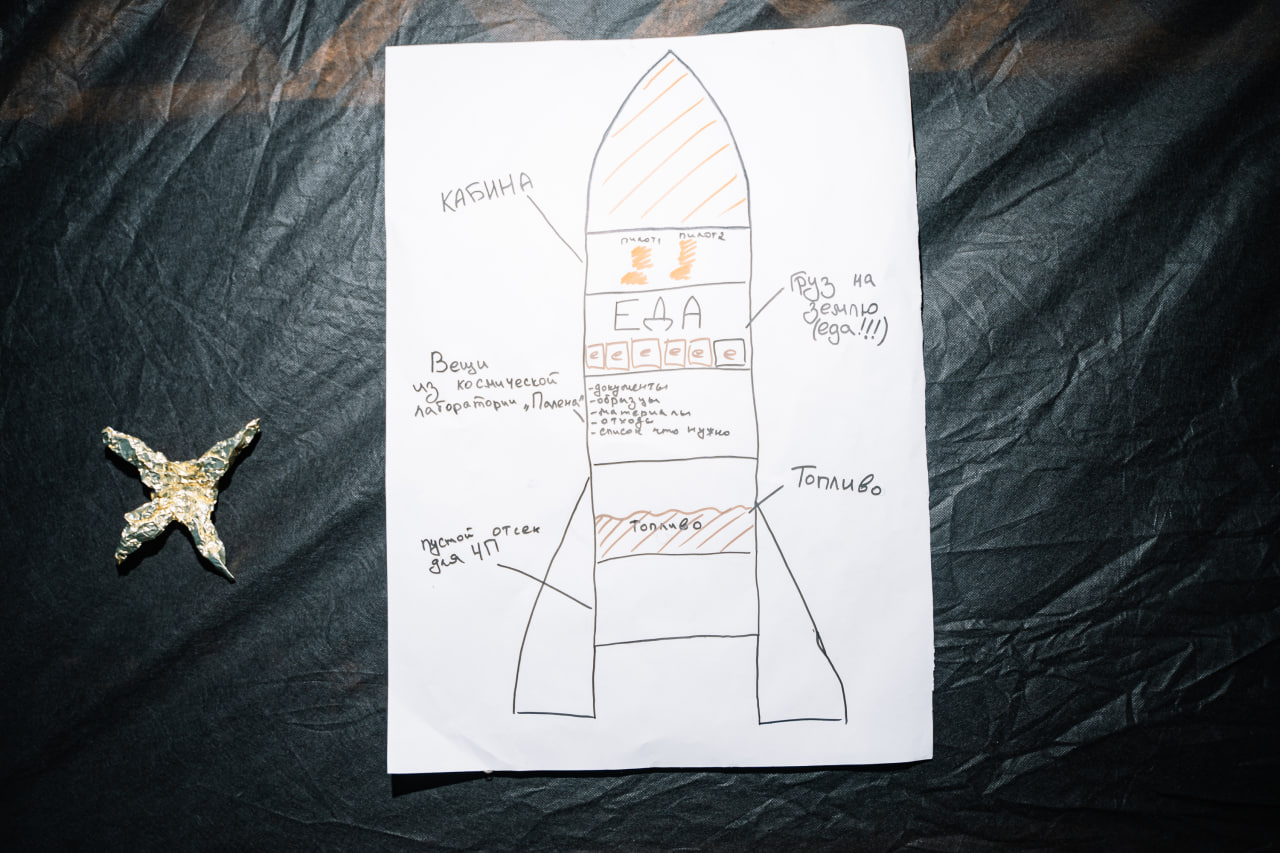 КАБИНА
пилот1 пилот2
ЕДА
Груз на
землю
(еда!!!)
е е е е е е
Вещи
из космической
лаборатории „Палена"
-документы
-образцы
-материалы
-отходы
-список что нужно
Топливо
Топливо
пустой отсек
для ЧП